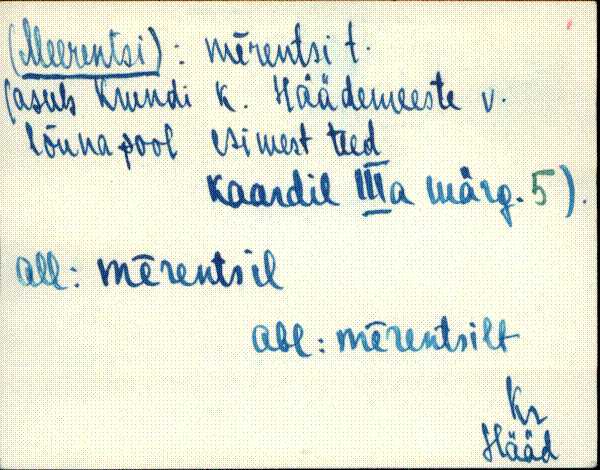 (Meerentsi): mērentsi t.
(asub Krundi k. Häädemeeste v.
lõunapool esimest teed
Kaardil IIIa märg. 5).
all: mērentsil
abl: mērentsilt
Kr
Hääd